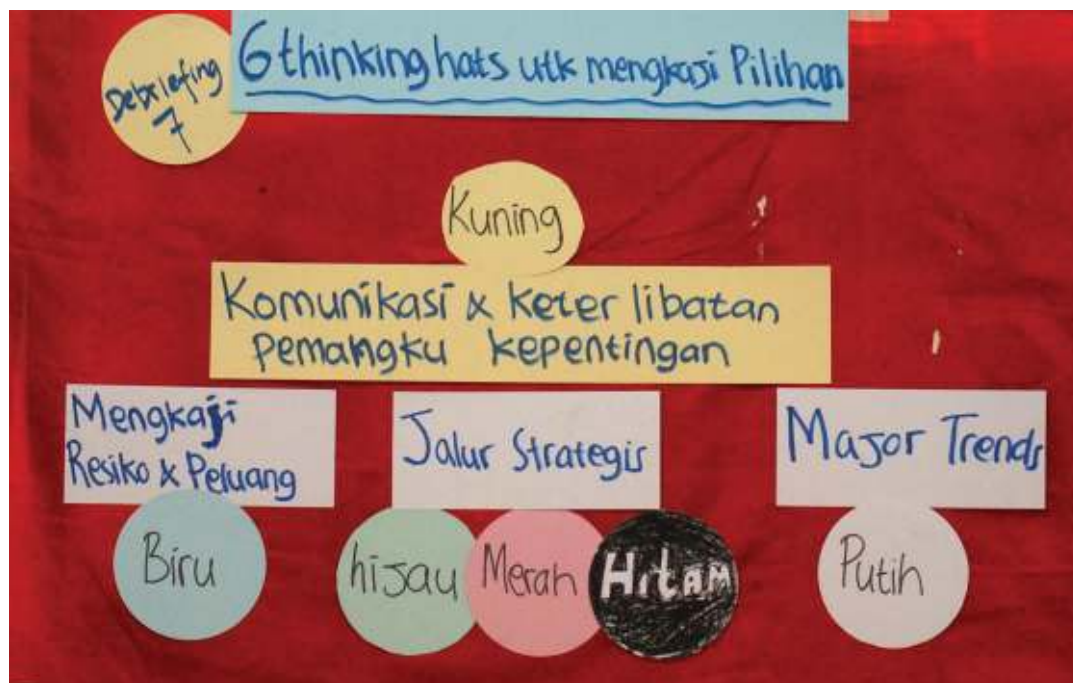 Debriefing
7
6 thinking hats utk mengkaji Pilihan
Kuning
Komunikasi & keter libatan
pemangku kepentingan
Mengkaji
Resiko & Peluang
Jalur Strategis
Major Trends
Biru
hijau
Merah
Hitam
Putih